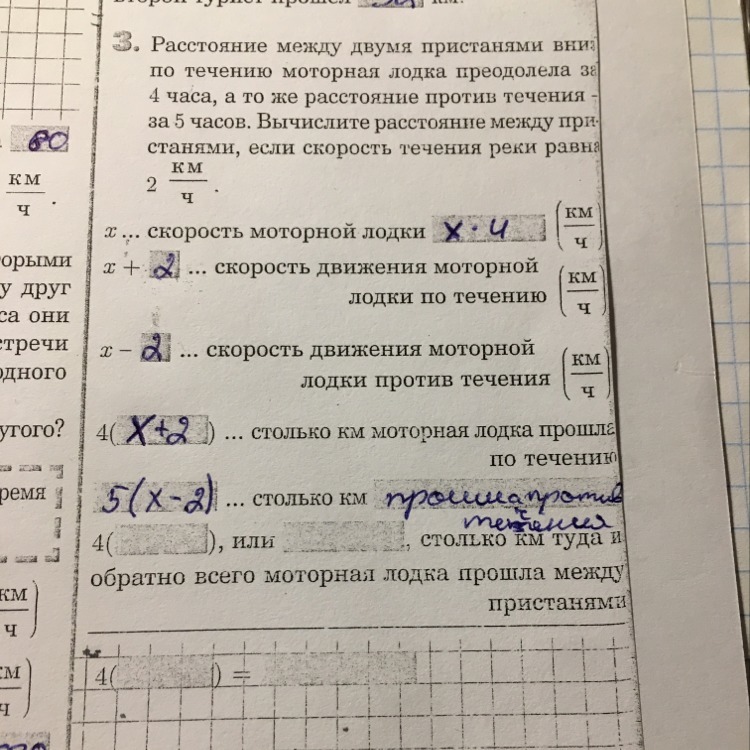 второй турист прошёл км.
3. Расстояние между двумя пристанями вниз
по течению моторная лодка преодолела за
4 часа, а то же расстояние против течения -
за 5 часов. Вычислите расстояние между при-
станями, если скорость течения реки равна
2 км/ч .
x ... скорость моторной лодки x · 4 (км/ч)
x + 2 ... скорость движения моторной
лодки по течению (км/ч)
x − 2 ... скорость движения моторной
лодки против течения (км/ч)
4( x+2 ) ... столько км моторная лодка прошла
по течению
5(x−2) ... столько км прошла против
течения
4( ), или , столько км туда и
обратно всего моторная лодка прошла между
пристанями
4( ) =
80
км/ч .
орыми
у друг
са они
стречи
одного
угого?
ремя
км/ч)
км/ч)